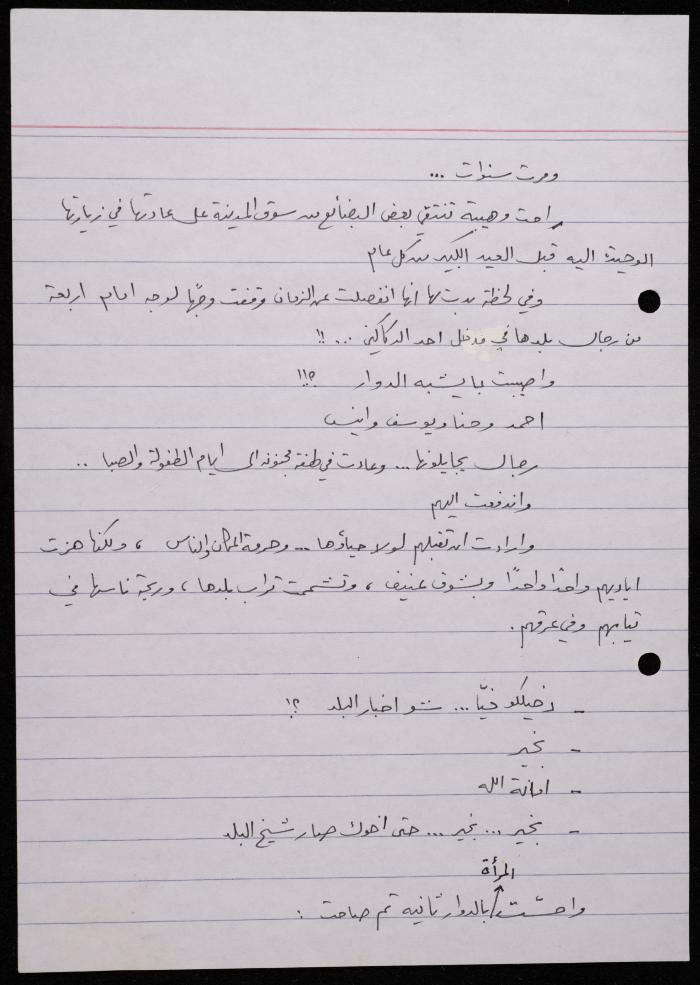 ومرت سنوات ...
راحت وهيبة تنتقي بعض البضائع من سوق المدينة على عادتها في زيارتها
الوحيدة اليه قبل العيد الكبير من كل عام
وفي لحظة بدت لها انها انفصلت عن الزمان وقفت وجهًا لوجه امام اربعة
من رجال بلدها في مدخل احد الدكاكين ... !!
واصيبت بما يشبه الدوار ؟!!
احمد وحنا ويوسف وانيس
رجال يجايلونها ... وعادت في لحظة مجنونه الى ايام الطفولة والصبا ..
واندفعت اليهم
وارادت ان تقبلهم لولا حياؤها ... وحرمة المكان والناس ، ولكنها هزت
اياديهم واحدًا واحدًا وبشوق عنيف ، وتشممت تراب بلدها ، وريحة ناسها في
ثيابهم وفي عرقهم .
- دخيلكو خيّا ... شو اخبار البلد ؟!
- بخير
- امانة الله
- بخير ... بخير ... حتى اخوك صار شيخ البلد
المرأة
واحسّت بالدوار ثانيه ثم صاحت :